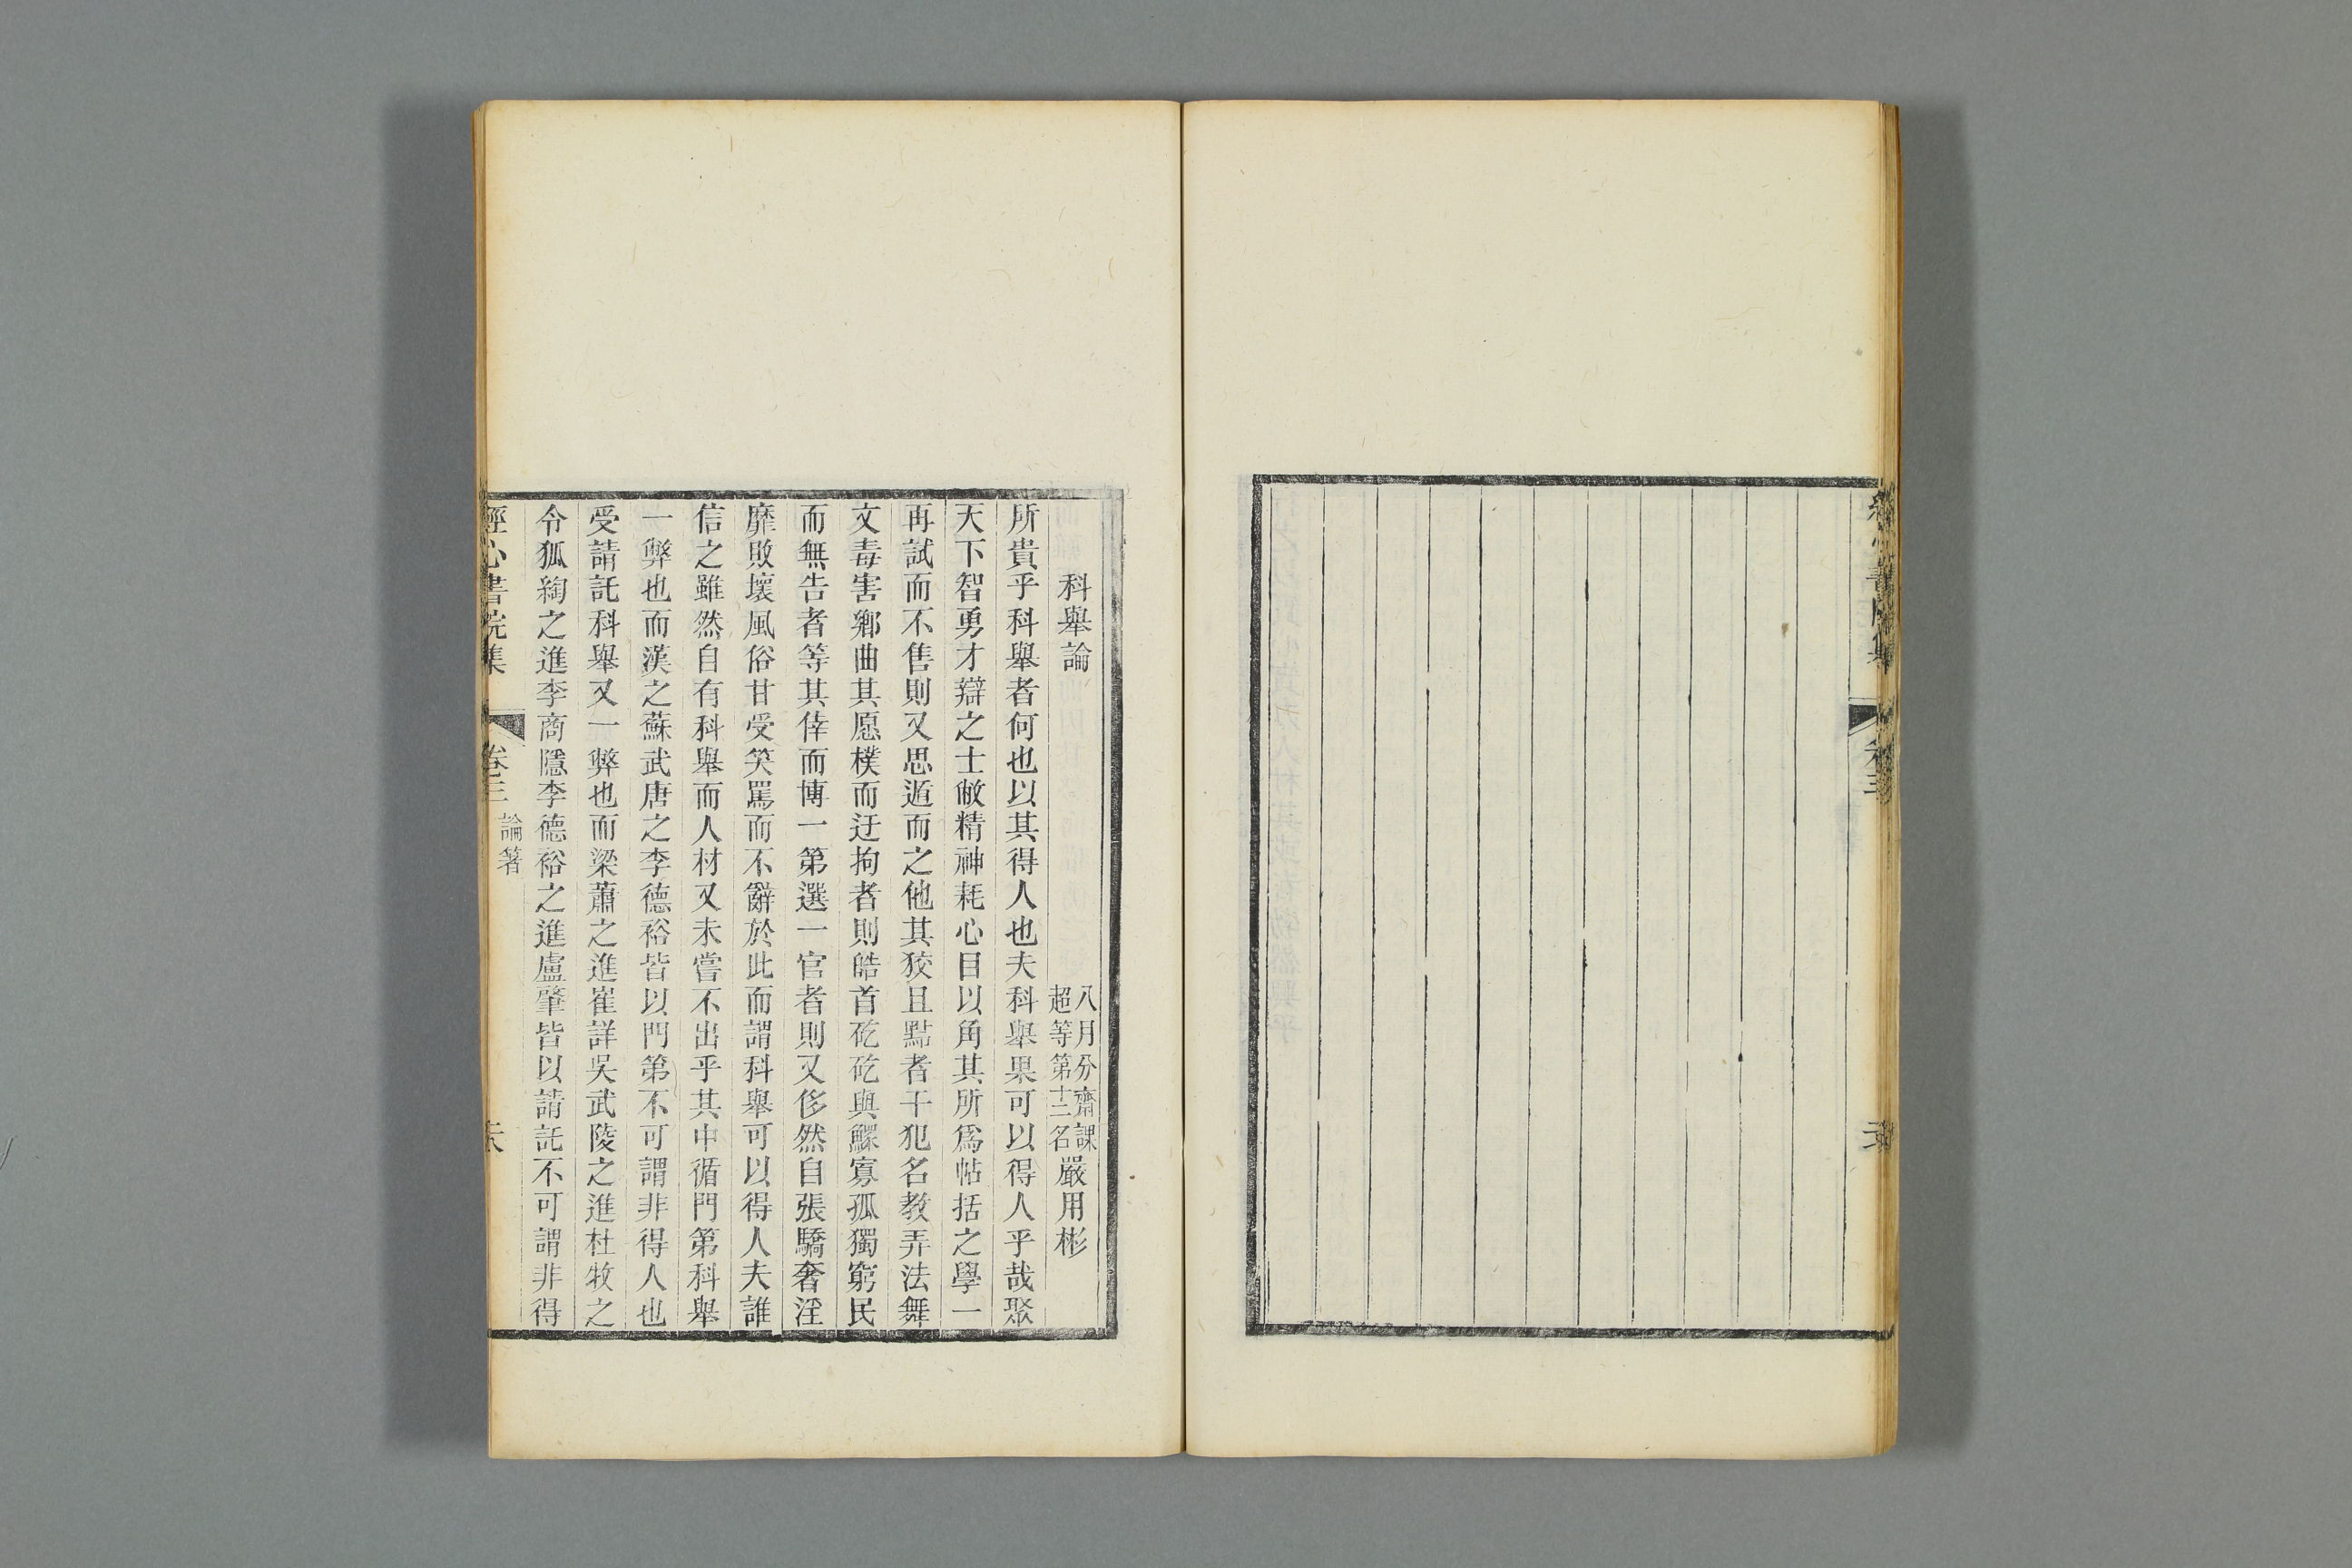 科舉論
八月分齋課
超等第十二名
嚴用彬
所貴乎科舉者何也以其得人也夫科舉果可以得人乎哉聚
天下智勇才辯之士敝精神耗心目以角其所爲帖括之學一
再試而不售則又思遁而之他其狡且黠者干犯名教弄法舞
文毒害鄉曲其愿樸而迂拘者則皓首矻矻與鰥寡孤獨窮民
而無告者等其倖而博一第選一官者則又侈然自張驕奢淫
靡敗壞風俗甘受笑罵而不辭於此而謂科舉可以得人夫誰
信之雖然自有科舉而人材又未嘗不出乎其中循門第科舉
一弊也而漢之蘇武唐之李德裕皆以門第不可謂非得人也
受請託科舉又一弊也而梁蕭之進崔詳吳武陵之進杜牧之
令狐綯之進李商隱李德裕之進盧肇皆以請託不可謂非得
經心書院集
卷三
論著